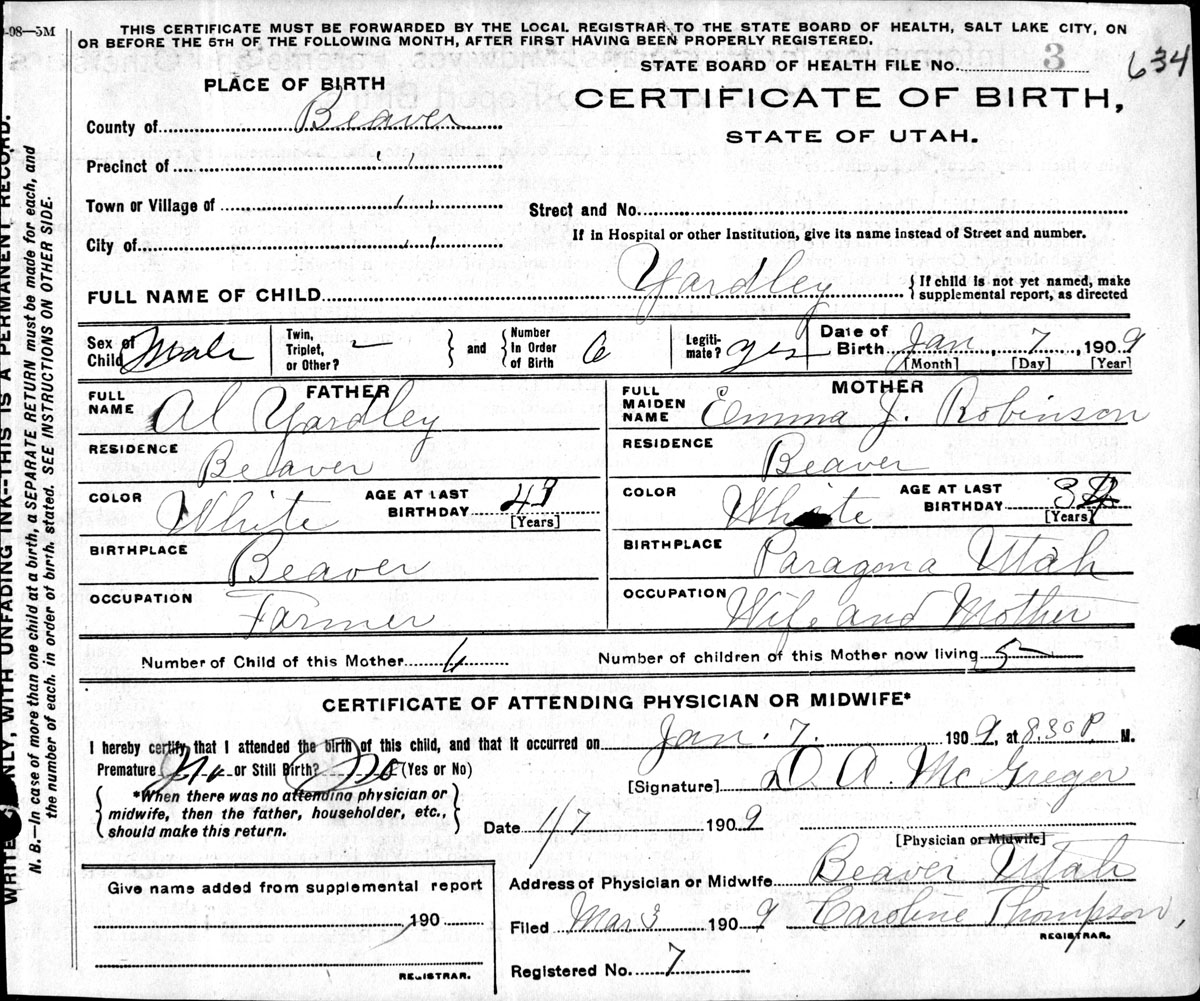 9-08—5M
THIS CERTIFICATE MUST BE FORWARDED BY THE LOCAL REGISTRAR TO THE STATE BOARD OF HEALTH, SALT LAKE CITY, ON
OR BEFORE THE 5TH OF THE FOLLOWING MONTH, AFTER FIRST HAVING BEEN PROPERLY REGISTERED.
STATE BOARD OF HEALTH FILE NO. 3 634
PLACE OF BIRTH
CERTIFICATE OF BIRTH,
STATE OF UTAH.
County of Beaver
Precinct of ''
Town or Village of ''
Street and No.
City of ''
If in Hospital or other Institution, give its name instead of Street and number.
FULL NAME OF CHILD Yardley {If child is not yet named, make
supplemental report, as directed
Sex of Child Male Twin, Triplet, or Other? — } and { Number In Order of Birth 6 Legiti-mate? yes Date of Birth Jan, 7, 1909
[Month] [Day] [Year]
FATHER
MOTHER
FULL NAME Al Yardley
FULL MAIDEN NAME Emma J. Robinson
RESIDENCE Beaver
RESIDENCE Beaver
COLOR White AGE AT LAST BIRTHDAY 43 [Years]
COLOR White AGE AT LAST BIRTHDAY [Years]
BIRTHPLACE Beaver
BIRTHPLACE Paragona Utah
OCCUPATION Farmer
OCCUPATION Wife and Mother
Number of Child of this Mother 6 Number of children of this Mother now living 5
CERTIFICATE OF ATTENDING PHYSICIAN OR MIDWIFE*
I hereby certify that I attended the birth of this child, and that it occurred on Jan. 7. 1909, at 8.30 P M.
Premature No or Still Birth? No (Yes or No)
[Signature] D A. McGregor
{ *When there was no attending physician or
midwife, then the father, householder, etc.,
should make this return. }
Date 1/7 1909
[Physician or Midwife]
Address of Physician or Midwife Beaver Utah
Give name added from supplemental report
, 190
REGISTRAR.
Filed Mar 3 1909 Caroline Thompson,
REGISTRAR.
Registered No. 7
WRITE ONLY, WITH UNFADING INK--THIS IS A PERMANENT RECORD.
N. B.—In case of more than one child at a birth, a SEPARATE RETURN must be made for each, and
the number of each, in order of birth, stated. SEE INSTRUCTIONS ON OTHER SIDE.